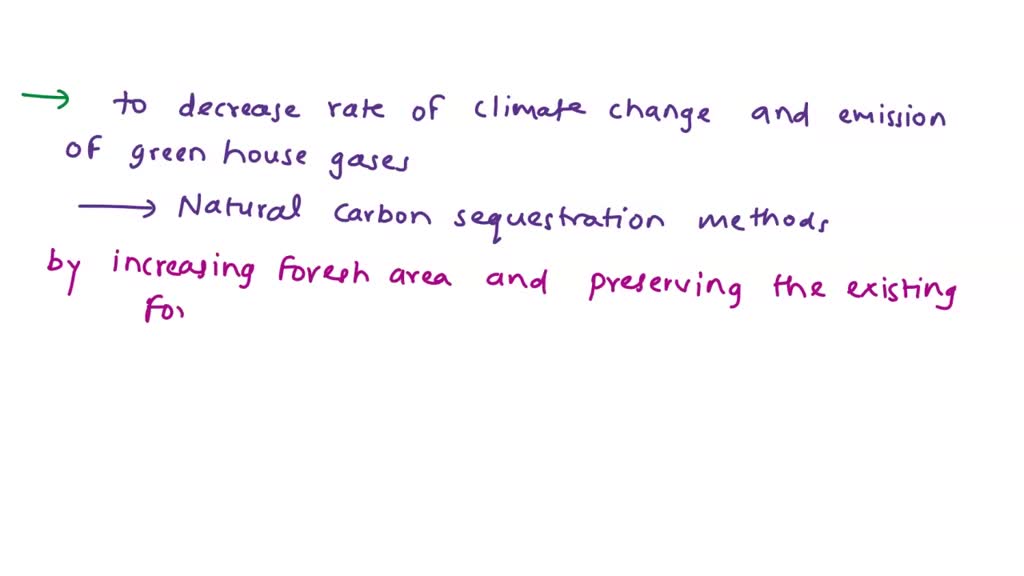 → to decrease rate of climate change and emission
of green house gases
→ Natural carbon sequestration methods
by increasing foresh area and preserving the existing
for